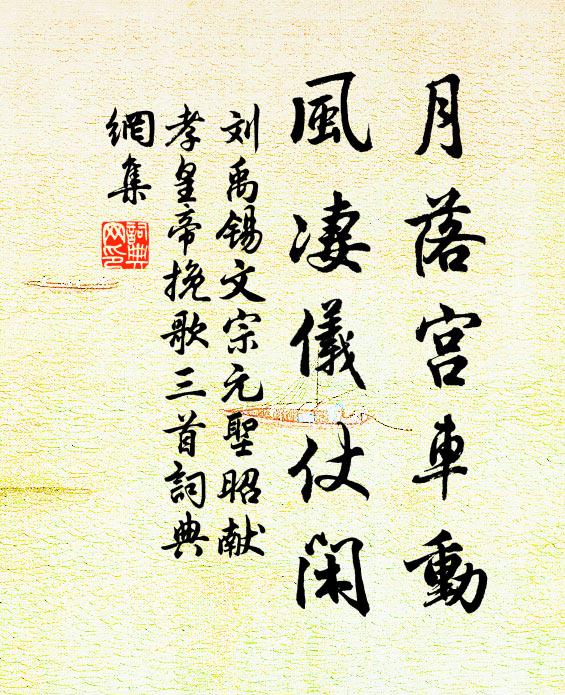 月落宫車動
風淒儀仗閑
刘禹锡文宗元聖昭献
孝皇帝挽歌三首詞典
網集
詞典
网印